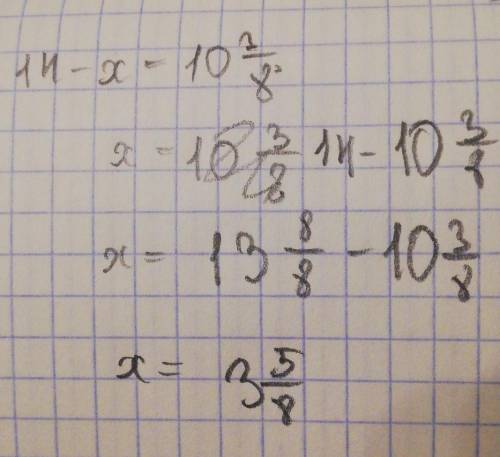 14 - x = 10 3/8
x = 10 3/8 14 - 10 3/8
x = 13 8/8 - 10 3/8
x = 3 5/8